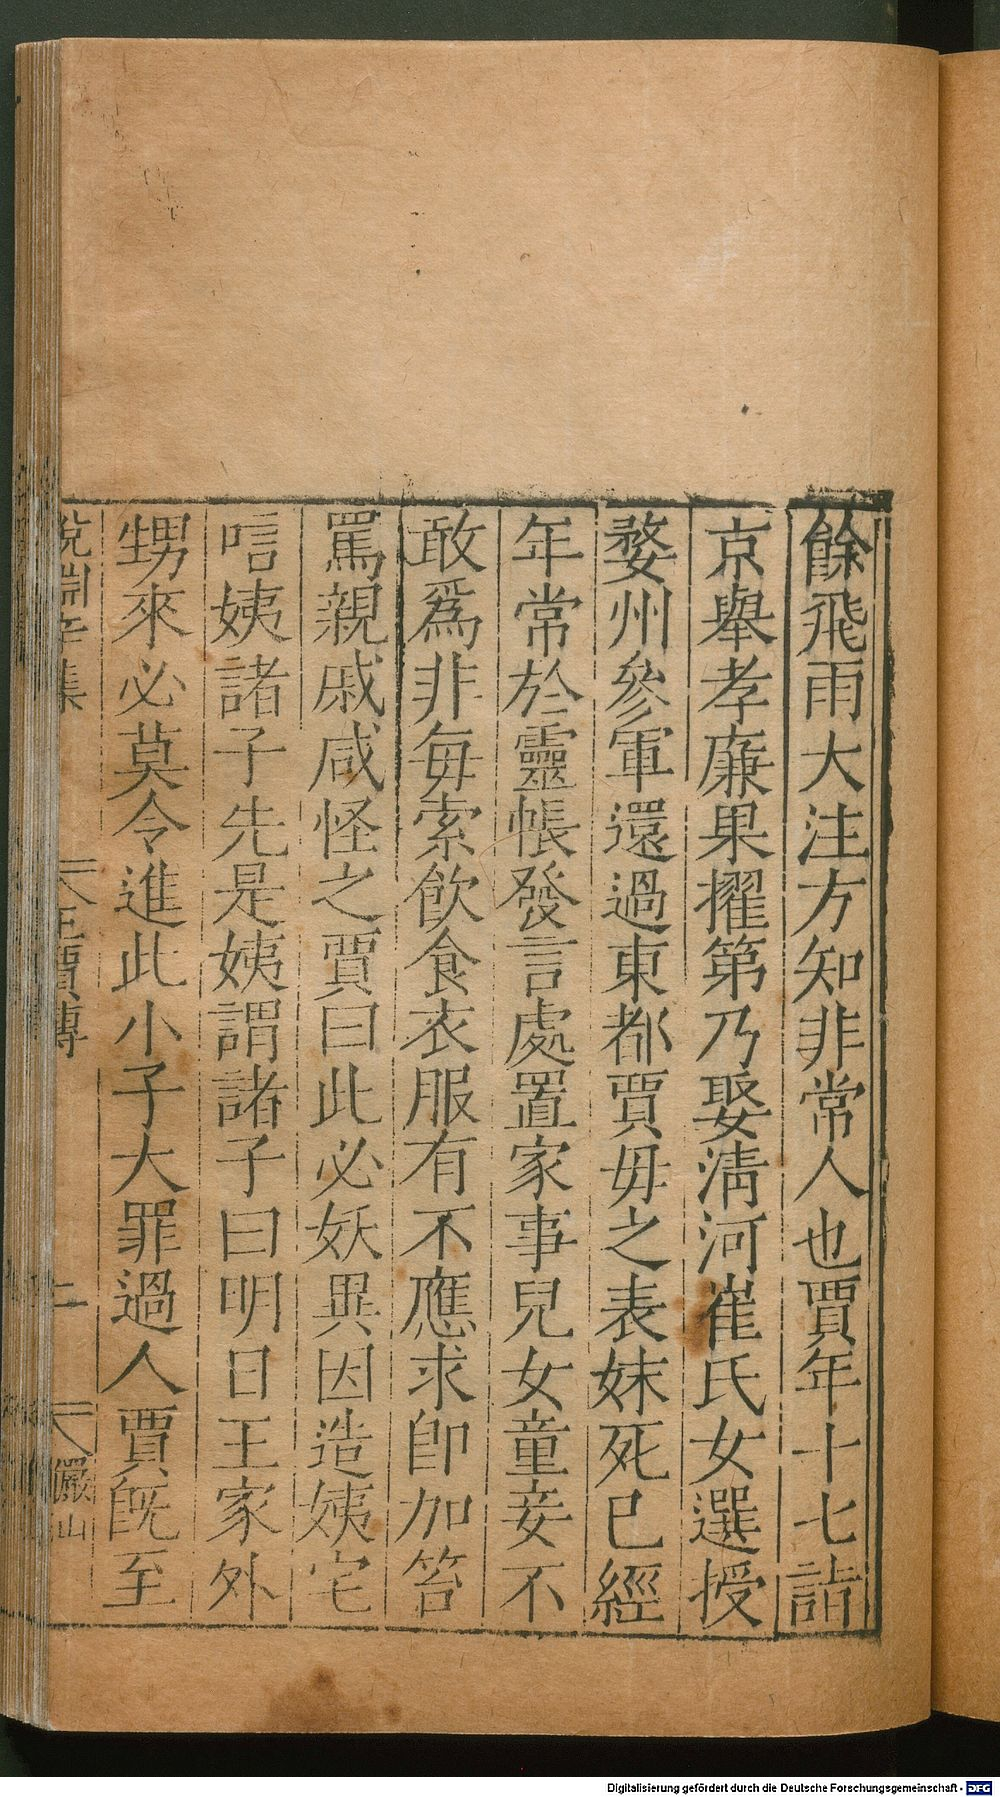 餘飛雨大注方知非常人也賈年十七詣
京舉孝廉果擢第乃娶淸河崔氏女選授
婺州參軍還過東都賈毋之表妹死已經
年常於靈帳發言處置家事兒女童妾不
敢爲非每索飲食衣服有不應求卽加笞
罵親戚咸怪之賈曰此必妖異因造姨宅
唁姨諸子先是姨謂諸子曰明日王家外
甥來必莫令進此小子大罪過人賈旣至
說淵辛集 王賈傳 二 儼山
Digitalisierung gefördert durch die Deutsche Forschungsgemeinschaft - DFG